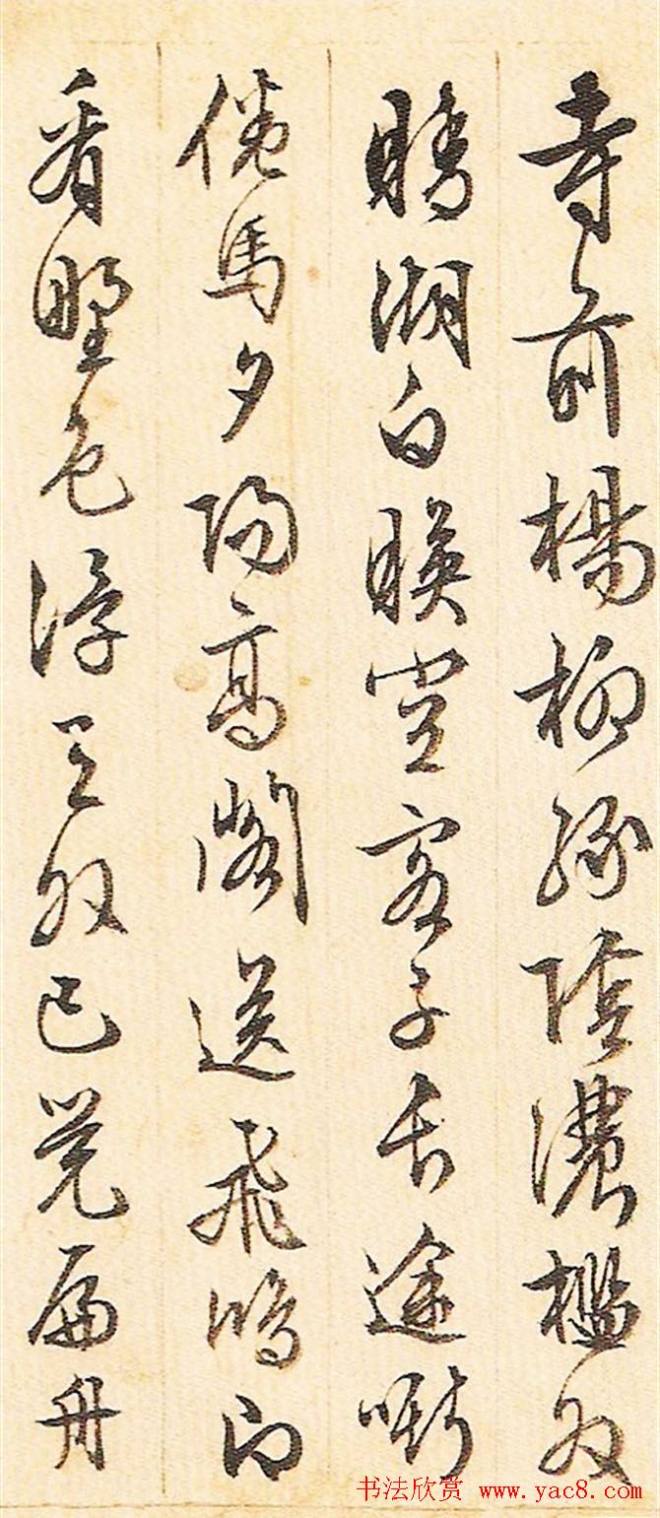 寺前楊柳綠陰濃檻外
晴湖白暎空客子長途嘶
倦馬夕陽高閣送飛鴻即
看野色浮天外已覺扁舟
书法欣赏 www.yac8.com